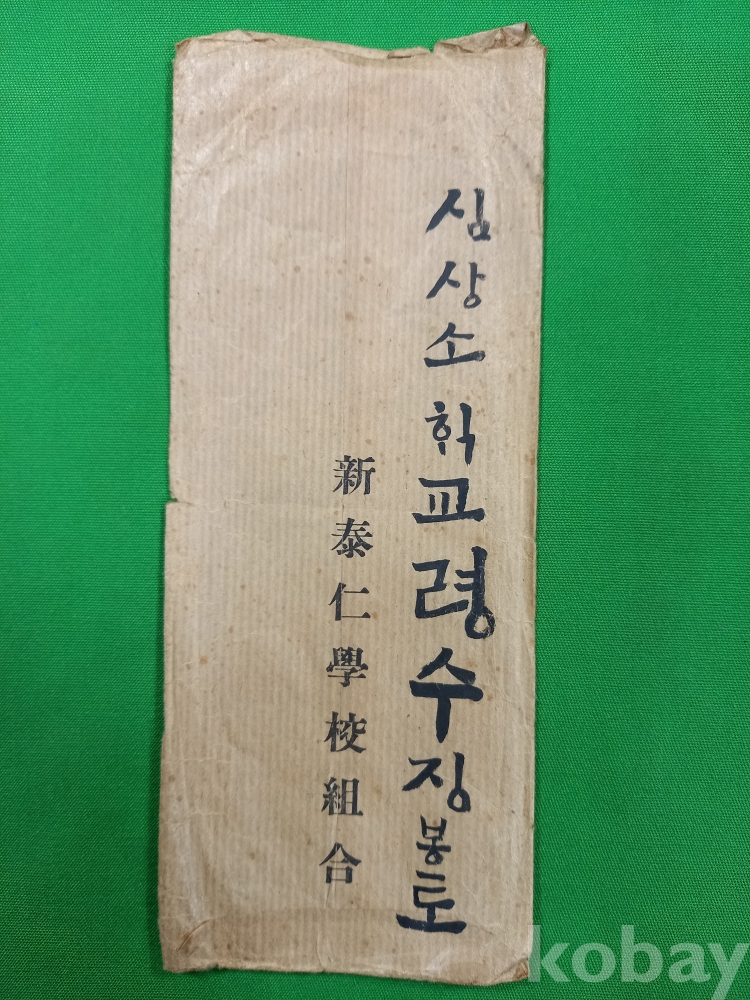 심상소학교령수징봉토
新泰仁學校組合
kobay